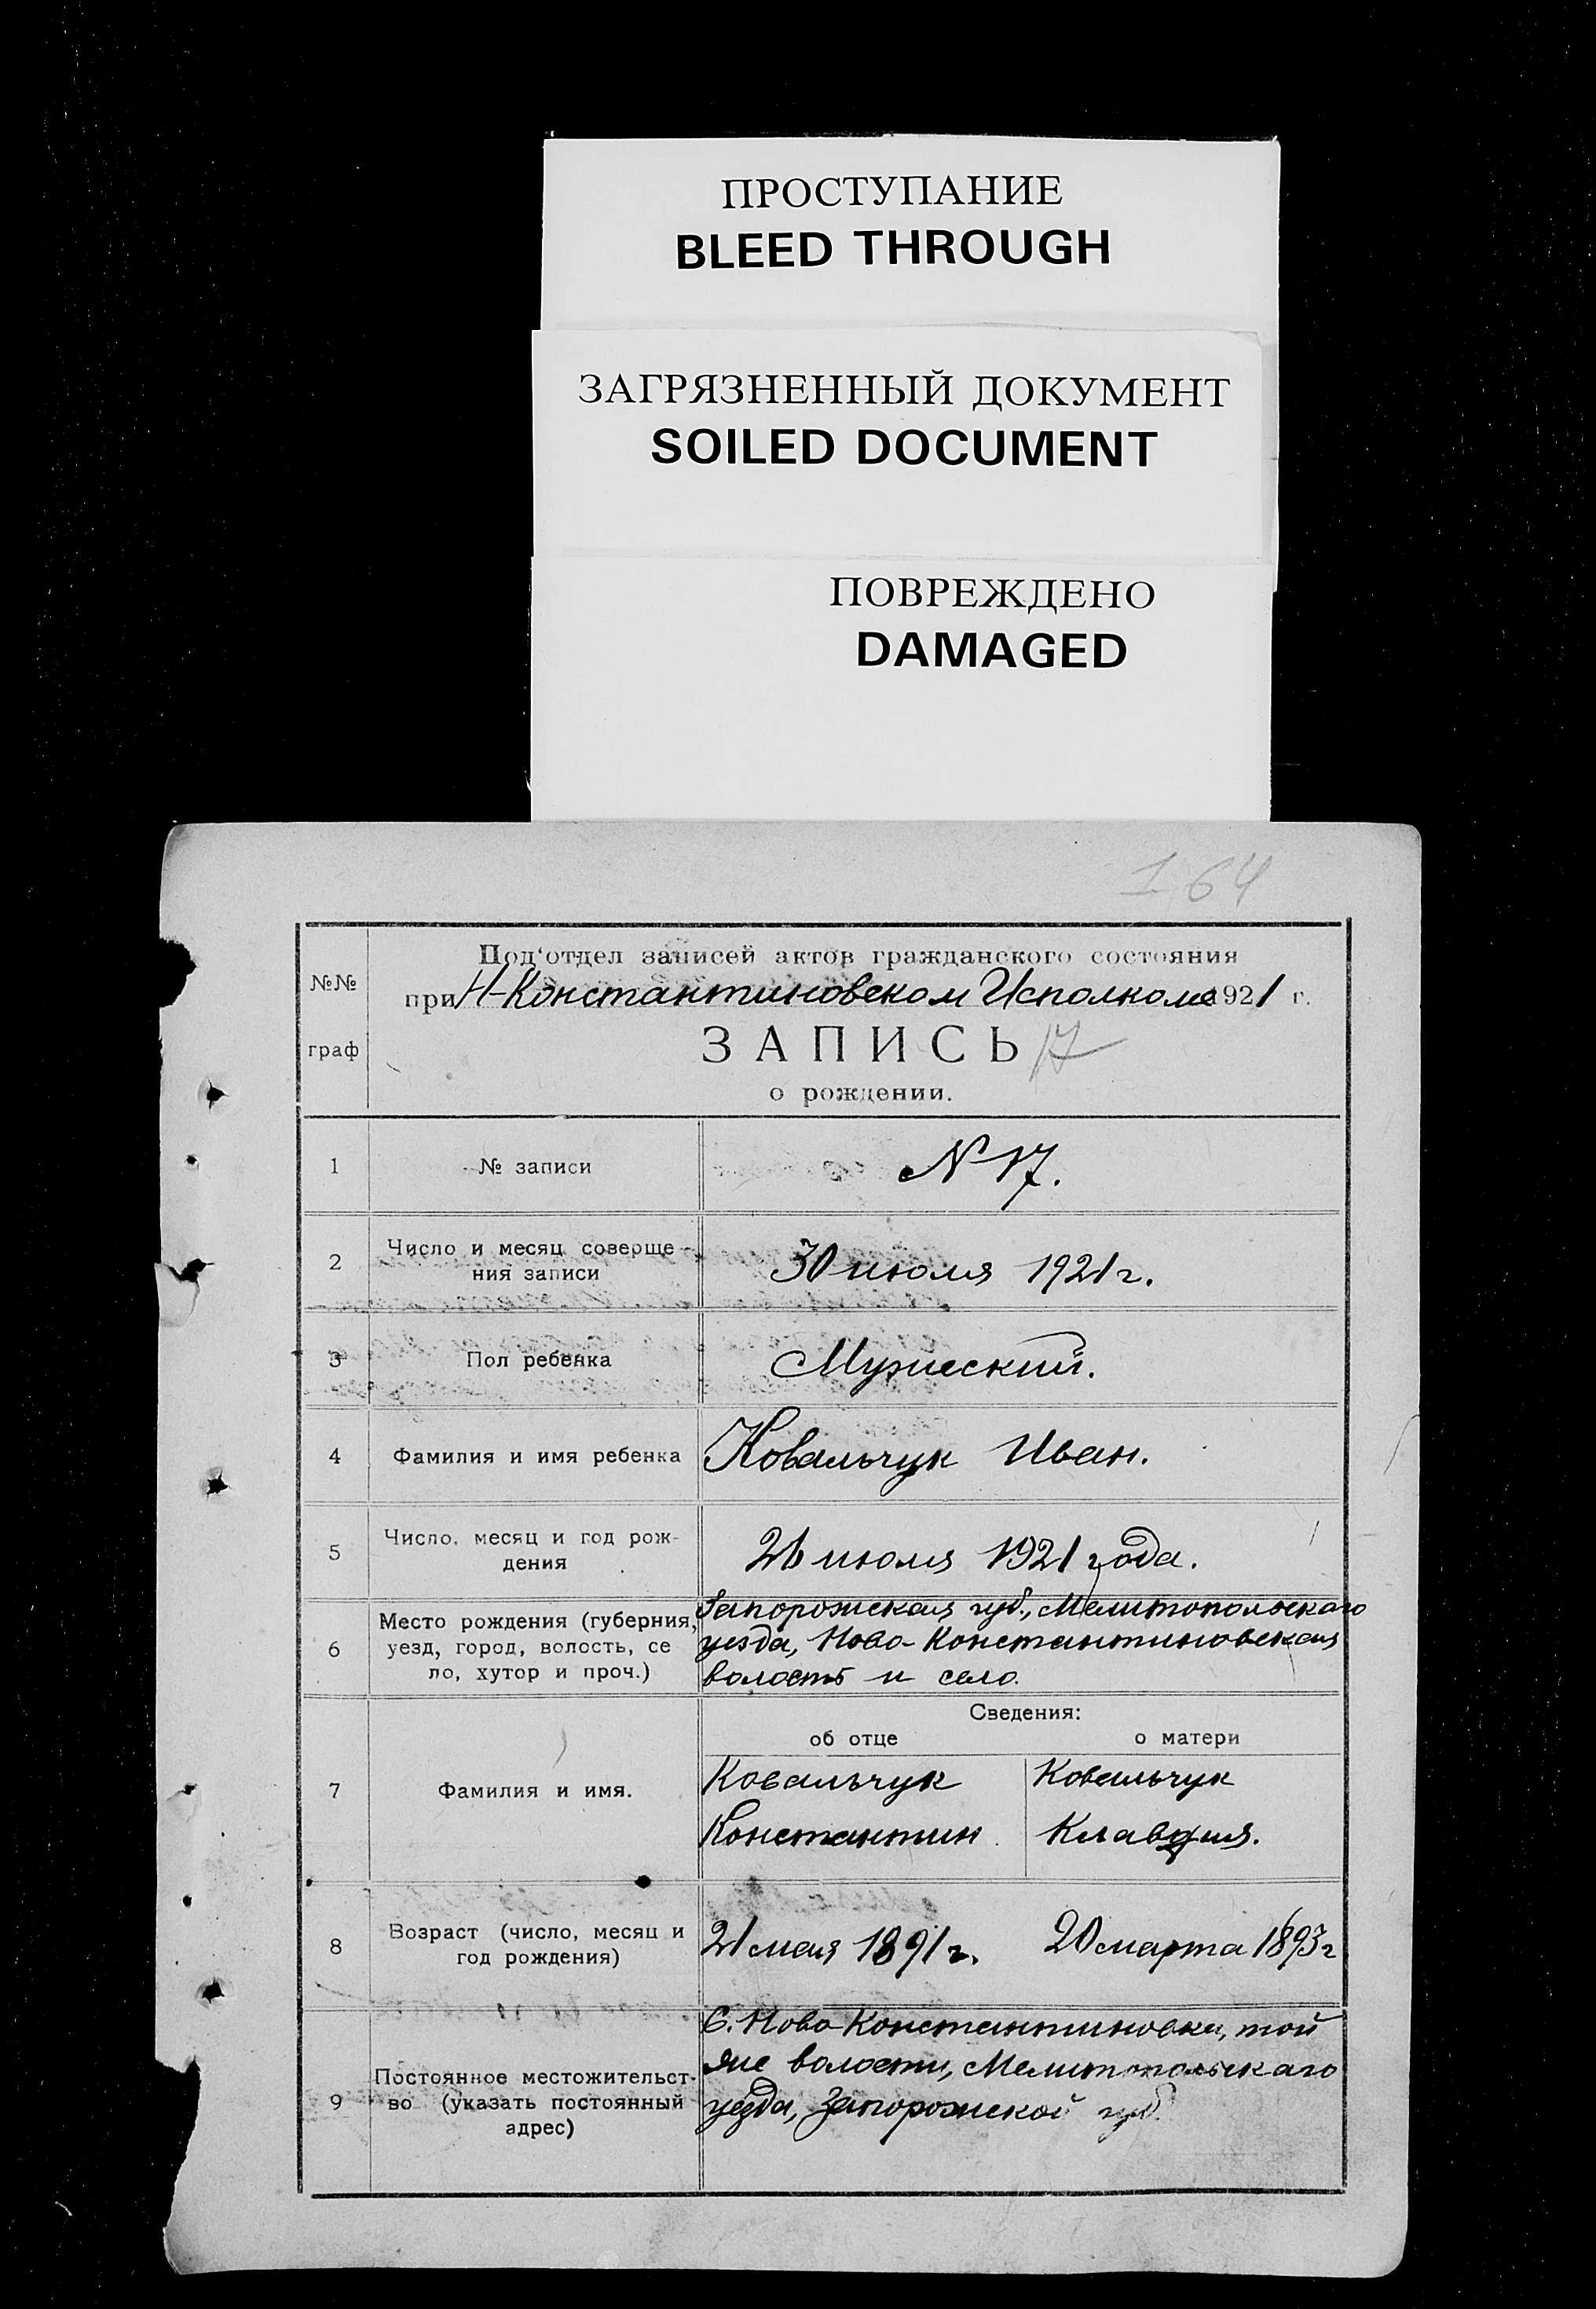 ПРОСТУПАНИЕ
BLEED THROUGH
ЗАГРЯЗНЕННЫЙ ДОКУМЕНТ
SOILED DOCUMENT
ПОВРЕЖДЕНО
DAMAGED
164
№№ граф
Под'отдел записей актов гражданского состояния
при Н-Константиновском Исполкоме 1921 г.
ЗАПИСЬ 17
о рождении.
1 № записи N 17.
2 Число и месяц соверше-
ния записи
30 июля 1921 г.
3 Пол ребенка Мужеский.
4 Фамилия и имя ребенка Ковальчук Иван.
5 Число, месяц и год рож-
дения
26 июля 1921 года.
6 Место рождения (губерния,
уезд, город, волость, се
ло, хутор и проч.)
Запорожская губ., Мелитопольскаго
уезда, Ново-Константиновская
волость и село.
Сведения:
об отце о матери
7 Фамилия и имя.
Ковальчук Ковальчук
Константин Клавдия.
8 Возраст (число, месяц и
год рождения)
21 мая 1891 г. 20 марта 1893 г
9 Постоянное местожительст-
во (указать постоянный
адрес)
С. Ново-Константиновка, той
же волости, Мелитопольскаго
уезда, Запорожской губ.